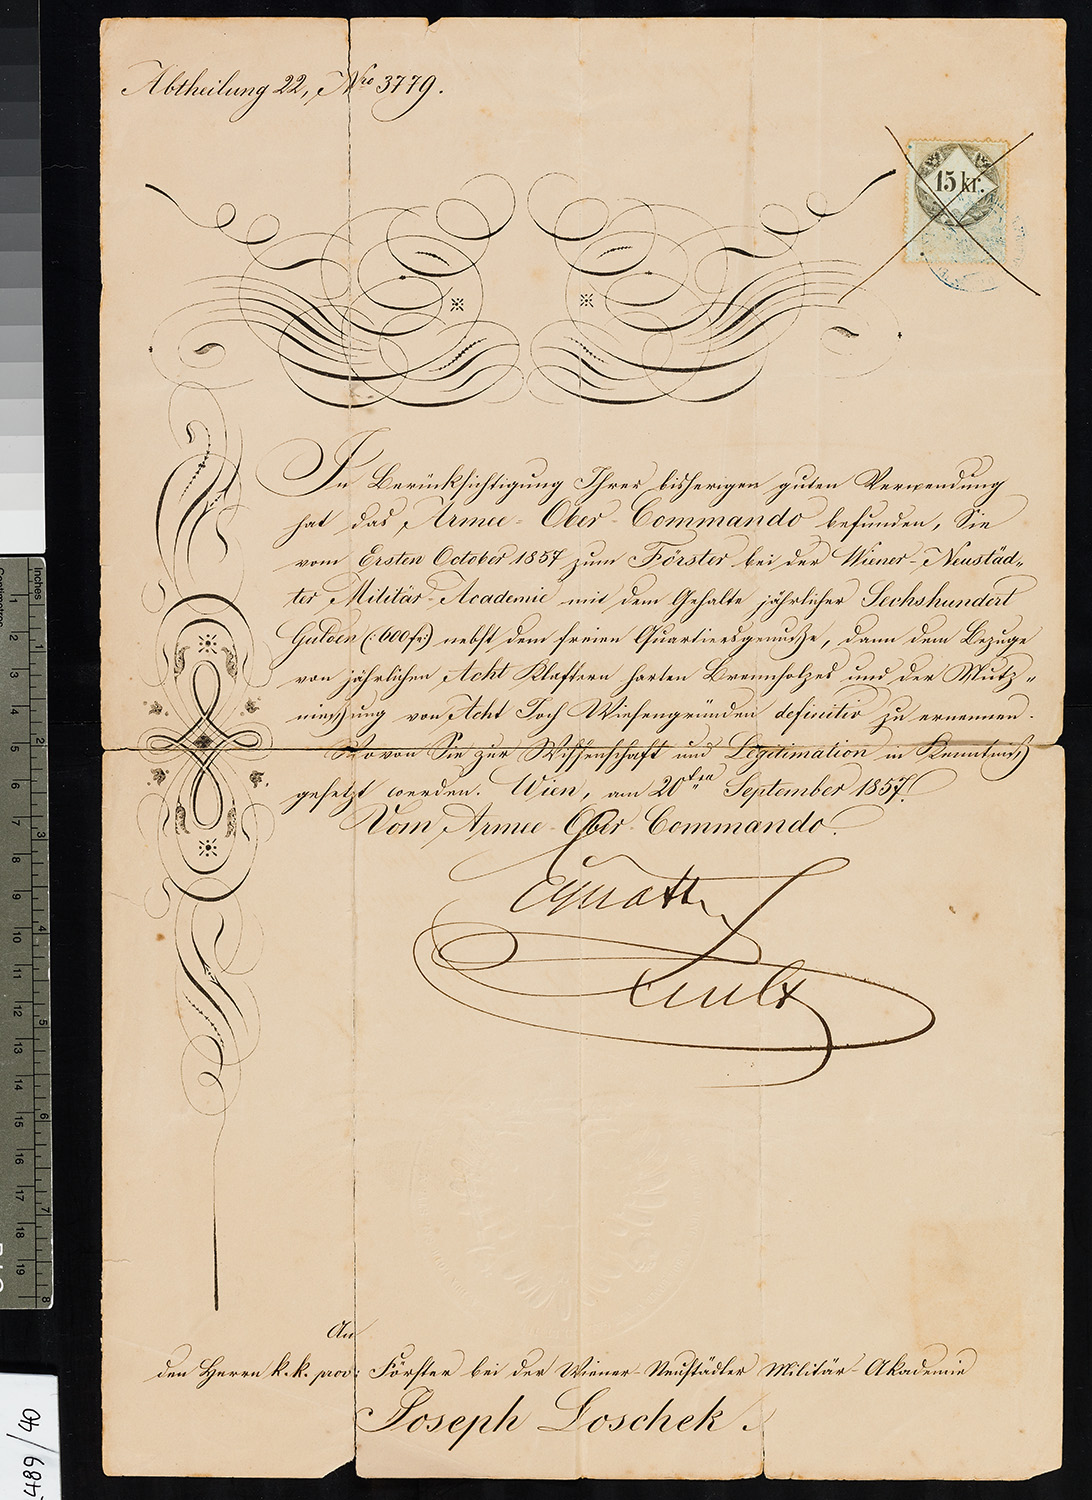 Abtheilung 22, Nro 3779.
15 kr.
In Berücksichtigung Ihrer bisherigen guten Verwendung
hat das Armee-Ober-Commando befunden, Sie
vom Ersten October 1857 zum Förster bei der Wiener-Neustäd-
ter Militär-Academie mit dem Gehalte jährlicher Sechshundert
Gulden (:600 fr:) nebst dem freien Quartiersgenuße, dann dem Bezuge
von jährlichen Acht Klaftern harten Brennholzes und der Nutz-
nießung von Acht Joch Wiesengründen definitiv zu ernennen.
Wovon Sie zur Wissenschaft und Legitimation in Kenntniß
gesetzt werden. Wien, am 20ten September 1857.
Vom Armee-Ober-Commando.
An
den Herrn k. k. prov: Förster bei der Wiener-Neustädter Militär-Akademie
Joseph Loschek.
489/40
inches
1 2 3 4 5 6 7 8 9 10 11 12 13 14 15 16 17 18 19
1 2 3 4 5 6 7 8